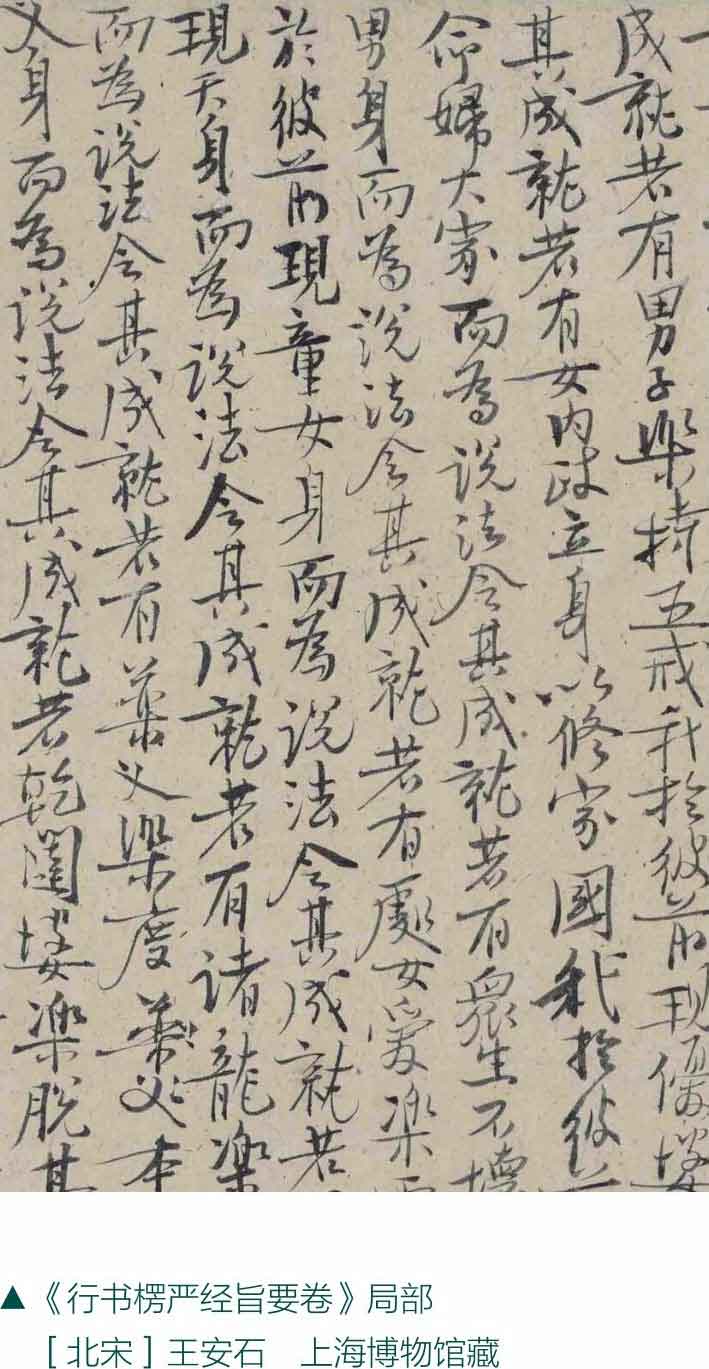 成就若有男子樂持五戒我於彼前現優婆
其成就若有女內政立身以修家國我於彼前
命婦大家而為說法令其成就若有眾生不壞
男身而為說法令其成就若有處女愛樂
於彼前現童女身而為說法令其成就若
現天身而為說法令其成就若有諸龍樂
而為說法令其成就若有藥叉樂度藥叉本
叉身而為說法令其成就若乾闥婆樂脫其
▲《行书楞严经旨要卷》局部
[北宋]王安石 上海博物馆藏